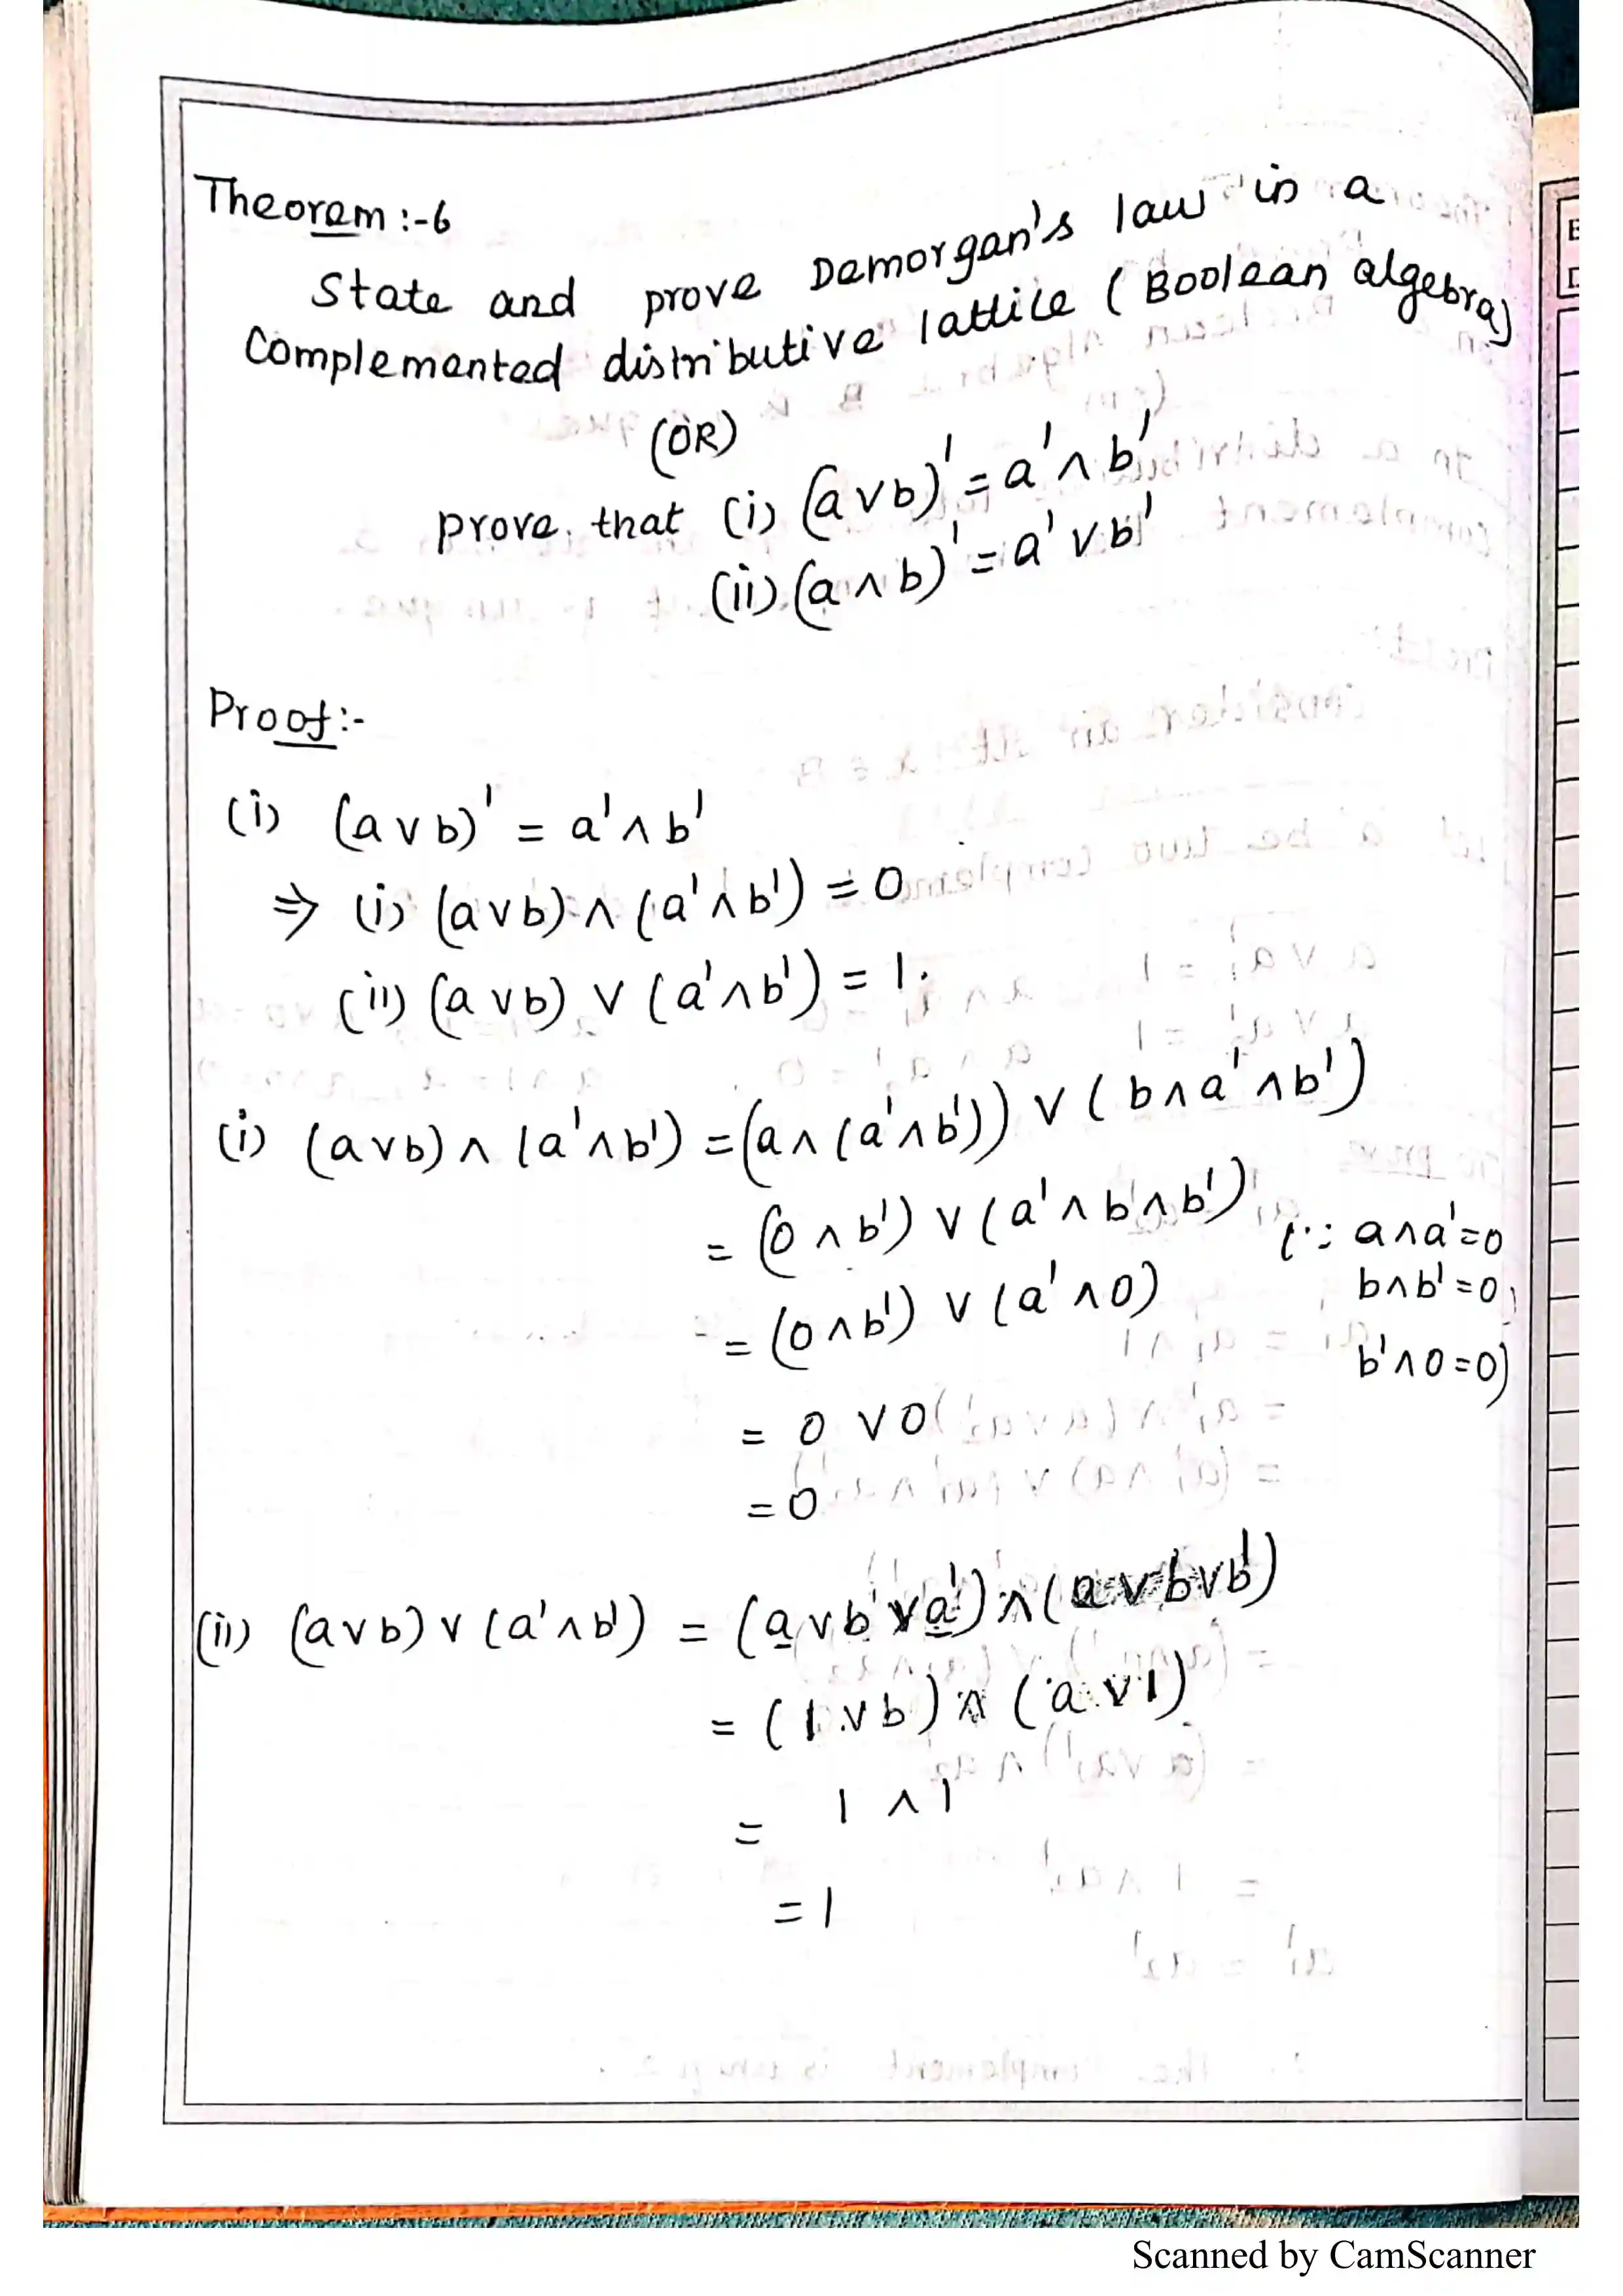 Theorem :-6
State and prove Demorgan's law in a
Complemented distributive lattice (Boolean algebra)
(OR)
prove that (i) (a∨b)' = a'∧b'
(ii) (a∧b)' = a'∨b'
Proof:-
(i) (a∨b)' = a'∧b'
⇒ (i) (a∨b)∧(a'∧b') = 0
(ii) (a∨b)∨(a'∧b') = 1.
(i) (a∨b)∧(a'∧b') = (a∧(a'∧b'))∨(b∧a'∧b')
= (0∧b')∨(a'∧b∧b') (∵ a∧a'=0
= (0∧b')∨(a'∧0) b∧b'=0,
b'∧0=0)
= 0∨0
= 0
(ii) (a∨b)∨(a'∧b') = (a∨b∨a')∧(a∨b∨b')
= (1∨b)∧(a∨1)
= 1∧1
= 1
Scanned by CamScanner